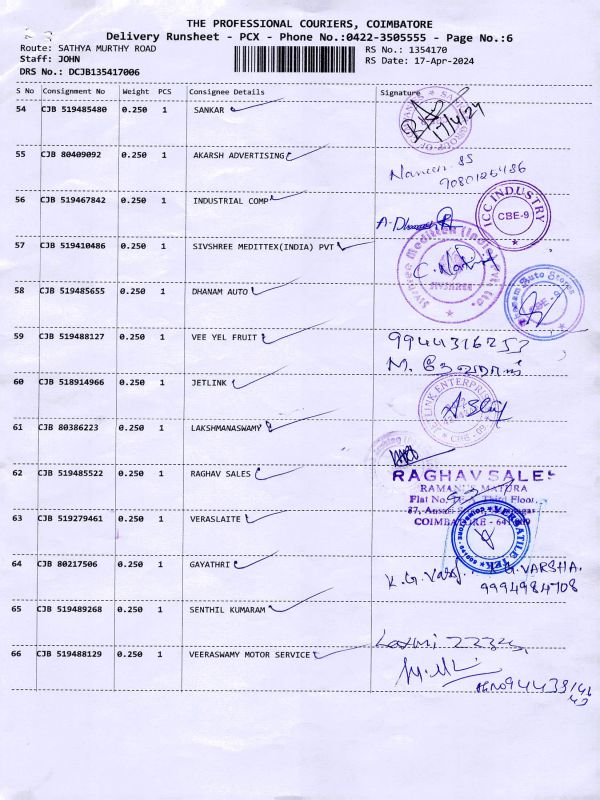 THE PROFESSIONAL COURIERS, COIMBATORE
Delivery Runsheet - PCX - Phone No.:0422-3505555 - Page No.:6
Route: SATHYA MURTHY ROAD RS No.: 1354170
Staff: JOHN RS Date: 17-Apr-2024
DRS No.: DCJB135417006
S No Consignment No Weight PCS Consignee Details Signature
54 CJB 519485480 0.250 1 SANKAR 17/4/24
55 CJB 80409092 0.250 1 AKARSH ADVERTISING
56 CJB 519467842 0.250 1 INDUSTRIAL COMP ICC INDUSTRY CBE-9
57 CJB 519410486 0.250 1 SIVSHREE MEDITTEX(INDIA) PVT
58 CJB 519485655 0.250 1 DHANAM AUTO
59 CJB 519488127 0.250 1 VEE YEL FRUIT
60 CJB 518914966 0.250 1 JETLINK JETLINK ENTERPRISE
61 CJB 80386223 0.250 1 LAKSHMANASWAMY
62 CJB 519485522 0.250 1 RAGHAV SALES RAGHAV SALES
COIMBATORE
63 CJB 519279461 0.250 1 VERASLAITE
64 CJB 80217506 0.250 1 GAYATHRI K.G. VARSHA.
9994984708
65 CJB 519489268 0.250 1 SENTHIL KUMARAM
66 CJB 519488129 0.250 1 VEERASWAMY MOTOR SERVICE Laxmi